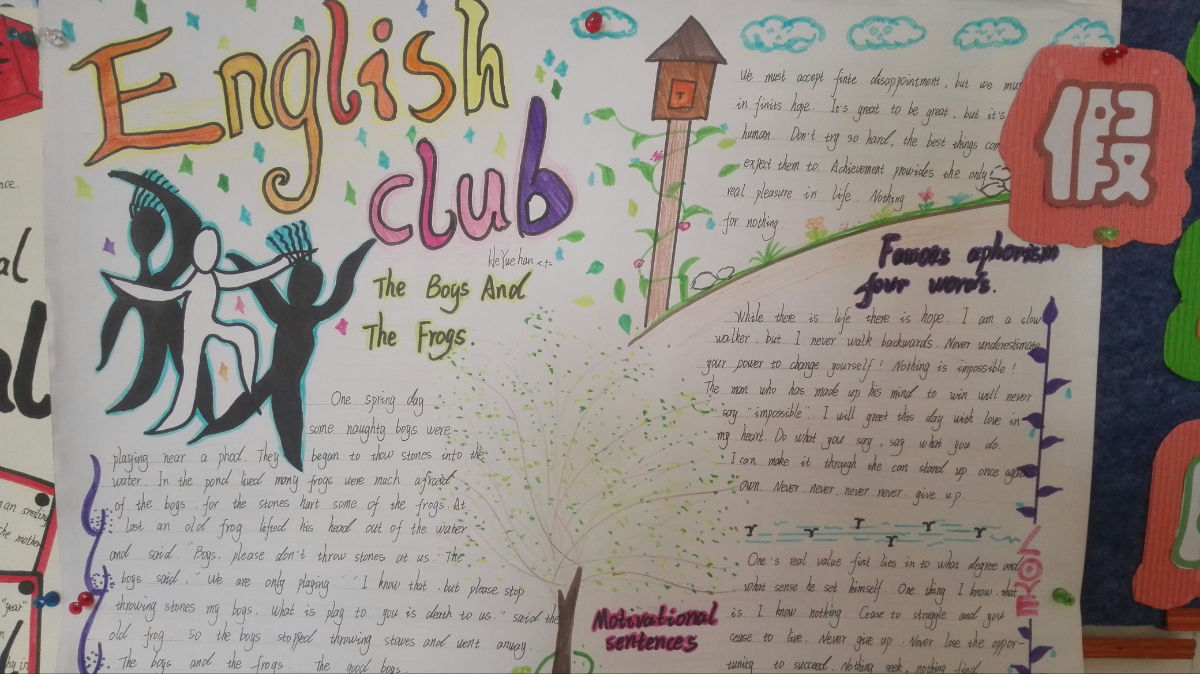 English
club
He Yue han
The Boys And
The Frogs.
One spring day
some naughty boys were
playing near a phod. They began to thow stones into the
water. In the pond lived many frogs were much afraid
of the boys, for the stones hurt some of the frogs. At
last an old frog lifted his head out of the water
and said. "Boys, please don't throw stones at us." The
boys said, "We are only playing." "I know that, but please stop
throwing stones my boys. What is play to you is death to us." said the
old frog. So the boys stopped throwing staves and went anway.
The boys and the frogs. The good boys.
We must accept finte disappointment, but we mus
in finits hope. It's great to be great, but it's
human. Don't try so hard, the best things com
expect them to. Achievement provides the only
real pleasure in life. Nothing
for nothing
Famoes aphorism
four words.
While there is life there is hope. I am a slow
walker, but I never walk backwards. Never underestimate
your power to change yourself! Nothing is impossible!
The man who has made up his mind to win will never
say "impossible". I will greet this day with love in
my heart. Do what you say, say what you do.
I can make it through the can stand up once aga
own. Never, never, never, never give up.
One's real value first lies in to what degree and
what sense he set himself. One thing I know, that
is I know nothing. Cease to struggle and you
cease to live. Never give up. Never lose the oppor-
tunity to succeed. Nothing seek, nothing find
Motivational
sentences
假
nce.
al
al
an smiling
the mother
"year"